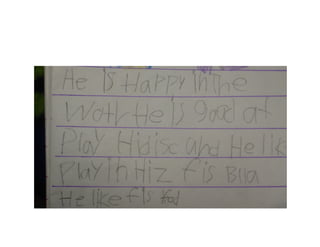 He is Happy in the
Wotr He is good at
Play Hidisc and He lik
Play in Hiz fis Blla
He like fis fod